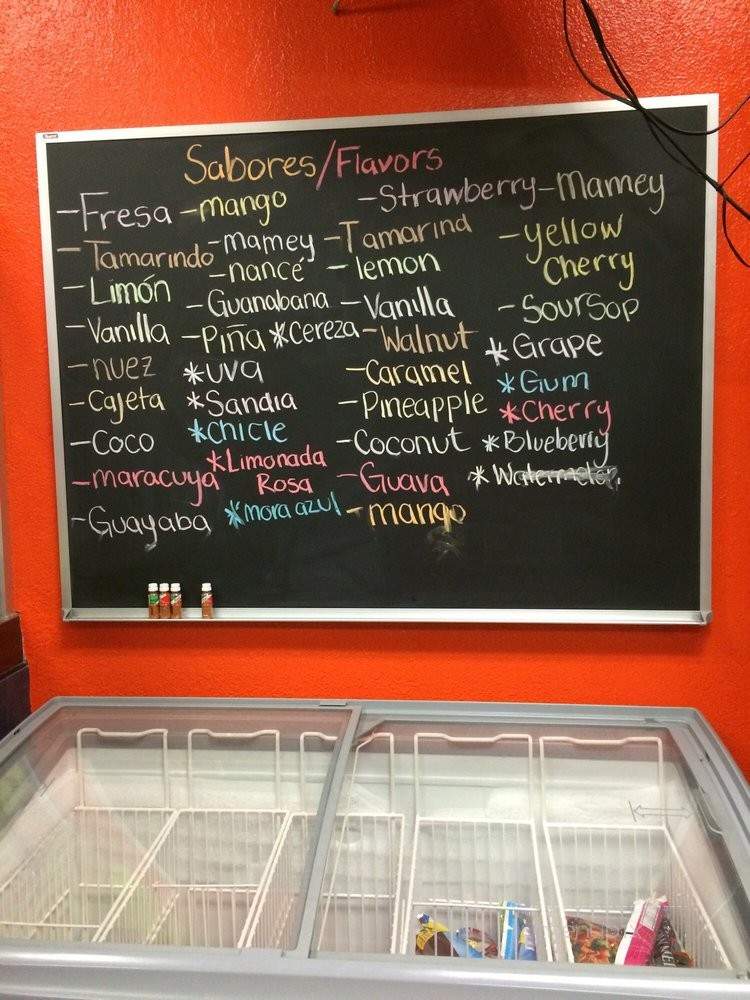 Sabores/Flavors
-Fresa
-Tamarindo
-Limón
-Vanilla
-nuez
-Cajeta
-Coco
-maracuya
-Guayaba
-mango
-mamey
-nancé
-Guanabana
-Piña *Cereza
*uva
*Sandia
*Chicle
*Limonada
Rosa
*mora azul
-Strawberry
-Tamarind
-lemon
-Vanilla
-Walnut
-Caramel
-Pineapple
-Coconut
-Guava
-mango
-Mamey
-yellow
Cherry
-Soursop
*Grape
*Gum
*Cherry
*Blueberry
*Watermelon